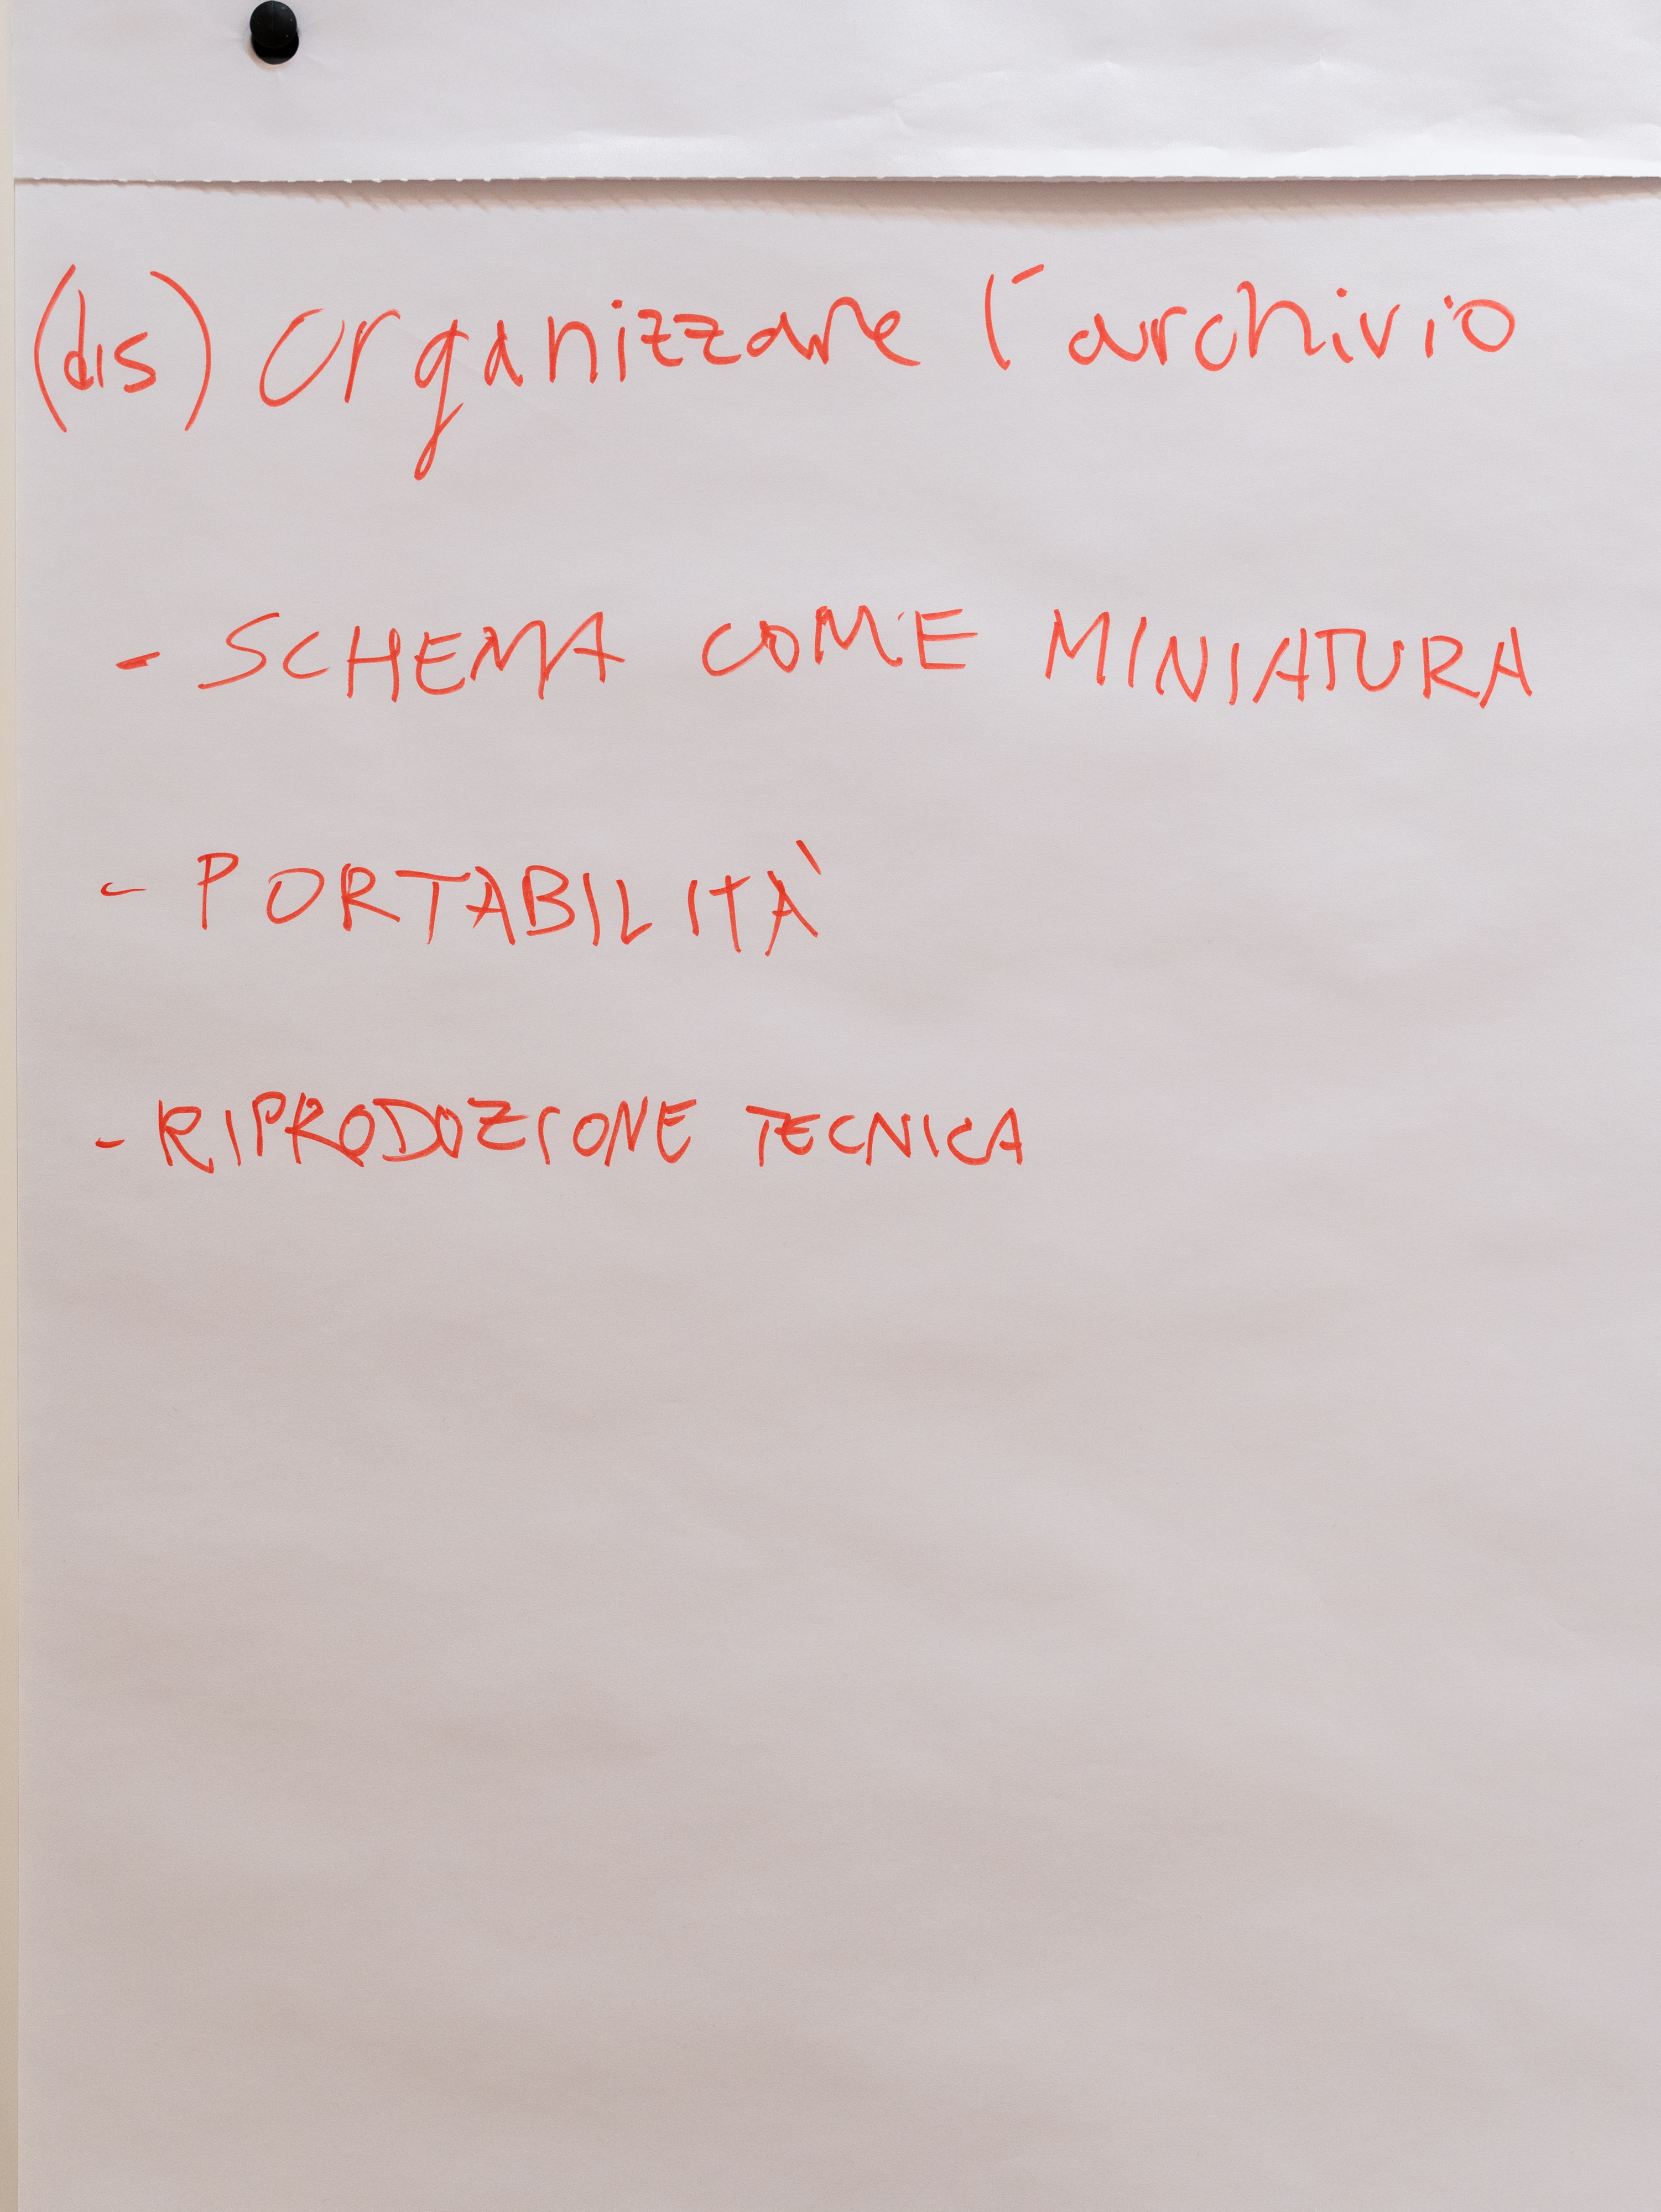 (dis) organizzare l'archivio
- SCHEMA COME MINIATURA
- PORTABILITÀ
- RIPRODUZIONE TECNICA